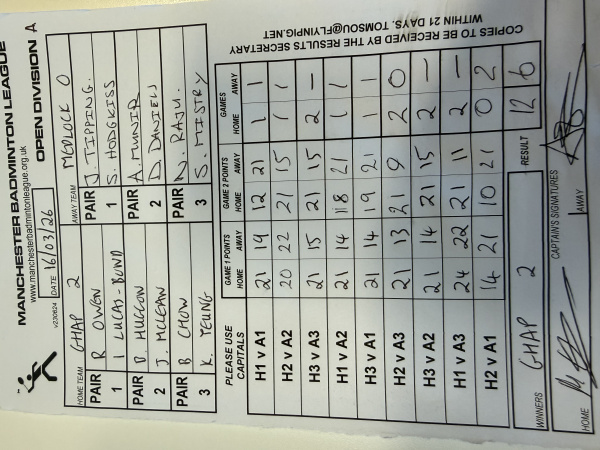 MANCHESTER BADMINTON LEAGUE
www.manchesterbadmintonleague.org.uk
v230624 DATE 16/03/26 OPEN DIVISION A
HOME TEAM GHAP 2 AWAY TEAM MEDLOCK O
PAIR R OWEN PAIR J. TIPPING.
1 I LUCAS-BOND 1 S. HODGKISS
PAIR D HUGGON PAIR A. MUNIR
2 J. MCLEAN 2 D. DANIELS
PAIR B CHOW PAIR N. RAJU.
3 K. YEUNG 3 S. MISTRY
PLEASE USE CAPITALS GAME 1 POINTS GAME 2 POINTS GAMES
HOME AWAY HOME AWAY HOME AWAY
H1 v A1 21 19 12 21 1 1
H2 v A2 20 22 21 15 1 1
H3 v A3 21 15 21 15 2 —
H1 v A2 21 14 18 21 1 1
H3 v A1 21 14 19 21 1 1
H2 v A3 21 13 21 9 2 0
H3 v A2 21 14 21 15 2 —
H1 v A3 24 22 21 11 2 —
H2 v A1 14 21 10 21 0 2
WINNERS GHAP 2 RESULT 12 6
COPIES TO BE RECEIVED BY THE RESULTS SECRETARY
WITHIN 21 DAYS. TOMSOU@FLYINPIG.NET
CAPTAIN'S SIGNATURES
HOME AWAY